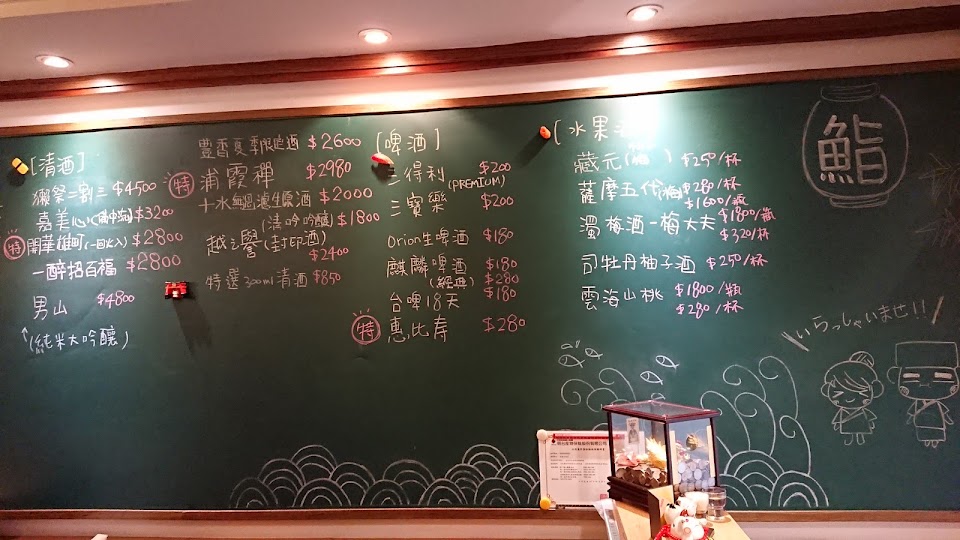 [清酒]
獺祭二割三 $4500
嘉美心(備中流) $3200
特 開華雄町(一回火入) $2800
一醉招百福 $2800
男山 $4800
↑(純米大吟釀)
豐香夏季限定酒 $2600
特 浦霞禪 $2980
十水 $2000
(清吟吟釀) $1800
越之譽(封印酒)
$2400
特選300ml清酒 $850
[啤酒]
三得利 $200
(PREMIUM)
三寶樂 $200
Orion生啤酒 $180
麒麟啤酒 $180
(經典) $280
台啤18天 $180
特 惠比寿 $280
[水果酒]
藏元(梅) $250/杯
薩摩五代(梅) $280/杯
$1600/瓶
濁梅酒-梅大夫 $1800/瓶
$320/杯
司牡丹柚子酒 $250/杯
雲海山桃 $1800/瓶
$280/杯
鮨
いらっしゃいませ!!